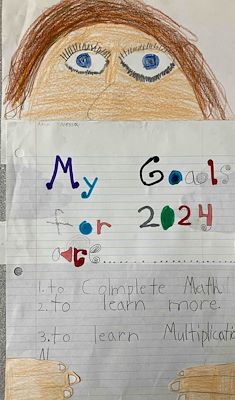 My Goals
for 2024
are..............
1. to Complete Math
2. to learn more.
3. to learn Multiplicatio